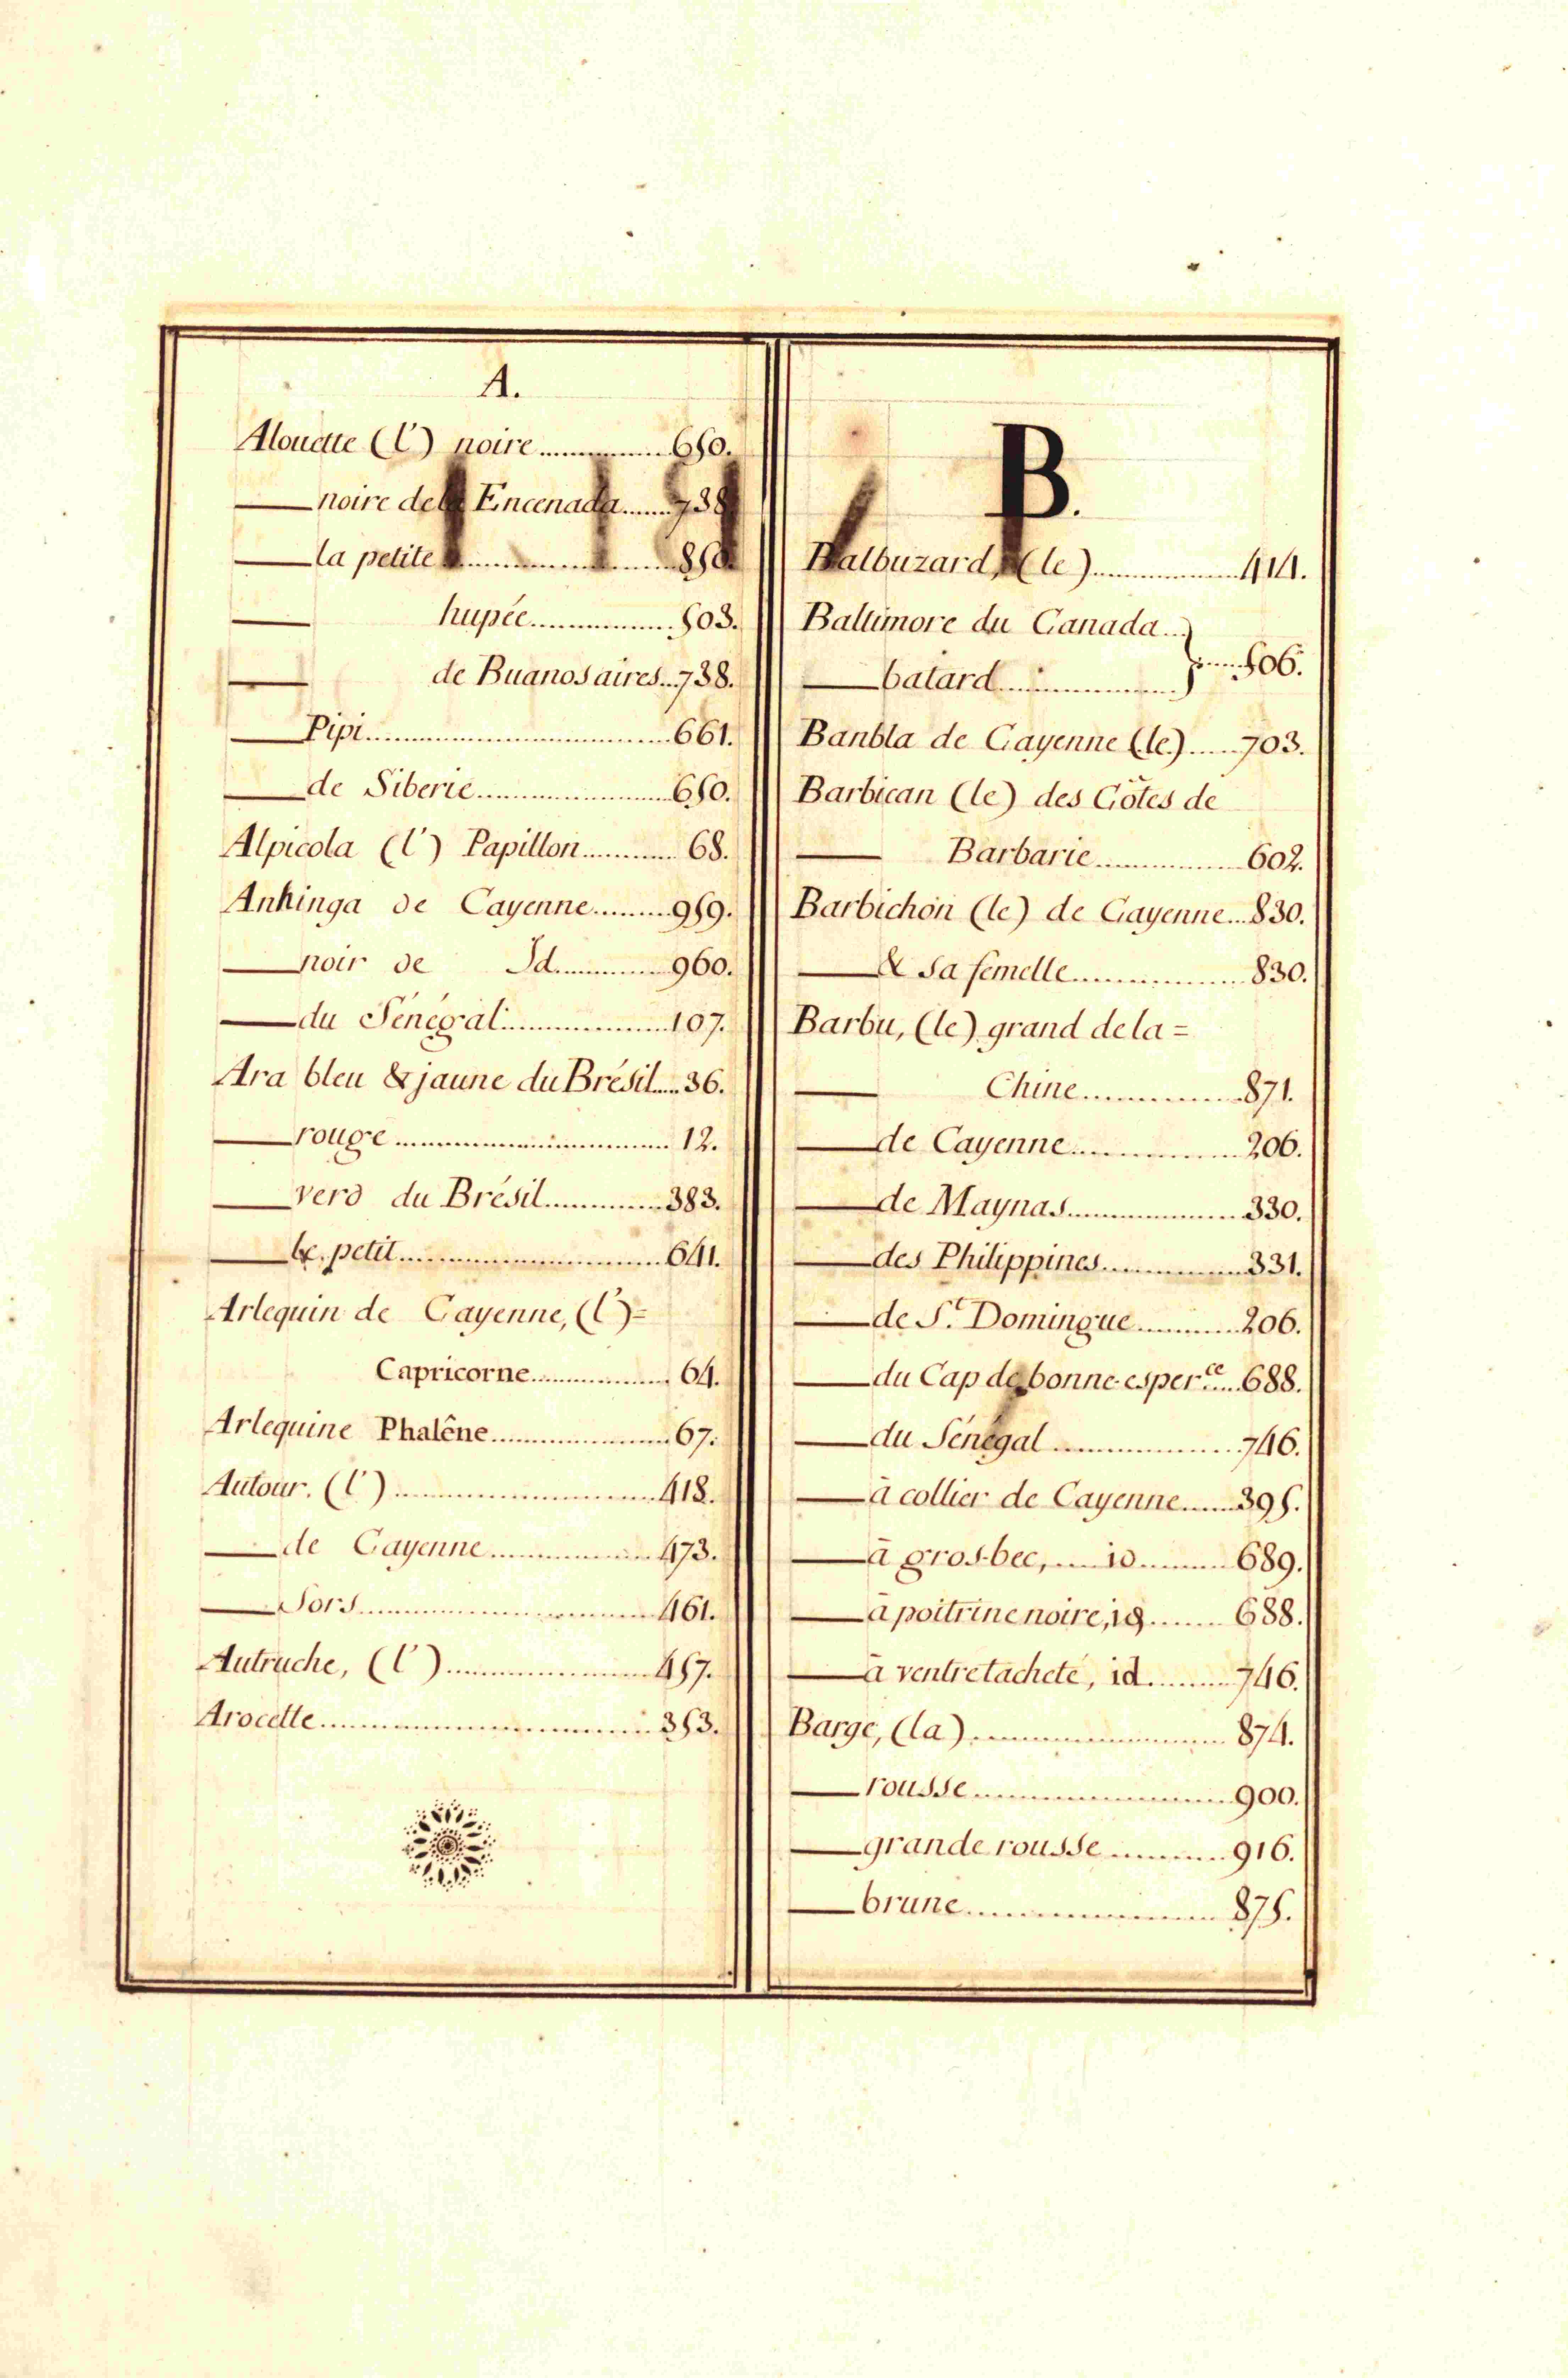 A.
Alouette (l') noire 650.
noire de la Encenada 738
la petite 850.
hupée 503.
de Buanos aires 738.
Pipi 661.
de Siberie 650.
Alpicola (l') Papillon 68.
Anhinga de Cayenne 959.
noir de Id. 960.
du Sénégal 107.
Ara bleu & jaune du Brésil 36.
rouge 12.
verd du Brésil 383.
le petit 641.
Arlequin de Cayenne, (l')=
Capricorne 64.
Arlequine Phalêne 67.
Autour. (l') 418.
de Cayenne 473.
Sors 461.
Autruche, (l') 457.
Arocette 353.
B.
Balbuzard, (le) 414.
Baltimore du Canada
batard 506.
Banbla de Cayenne (le) 703.
Barbican (le) des Côtes de
Barbarie 602.
Barbichon (le) de Cayenne 830.
& sa femelle 830.
Barbu, (le) grand de la =
Chine 871.
de Cayenne 206.
de Maynas 330.
des Philippines 331.
de St. Domingue 206.
du Cap de bonne esperce 688.
du Sénégal 746.
à collier de Cayenne 395.
à gros-bec, id 689.
à poitrine noire, id 688.
à ventre tacheté, id. 746.
Barge, (la) 874.
rousse 900.
grande rousse 916.
brune 875.